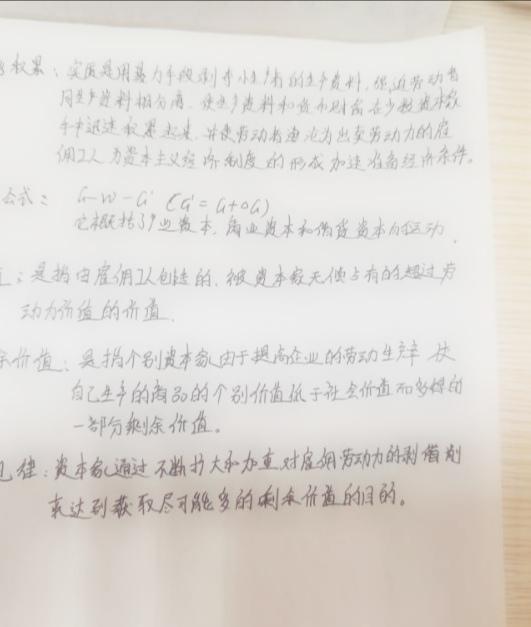 积累：实质是用暴力手段剥夺小生产者的生产资料，强迫劳动者
同生产资料相分离，使生产资料和货币财富在少数资本家
手中迅速积累起来，并使劳动者沦为出卖劳动力的雇
佣工人，为资本主义经济制度的形成加速准备经济条件。
公式： G-W-G' (G'=G+△G)
它概括了产业资本、商业资本和借贷资本的运动
：是指由雇佣工人创造的，被资本家无偿占有的超过劳
动力价值的价值
余价值：是指个别资本家由于提高企业的劳动生产率，使
自己生产的商品的个别价值低于社会价值而多得的
一部分剩余价值。
律：资本家通过不断扩大和加重对雇佣劳动力的剥削
来达到获取尽可能多的剩余价值的目的。